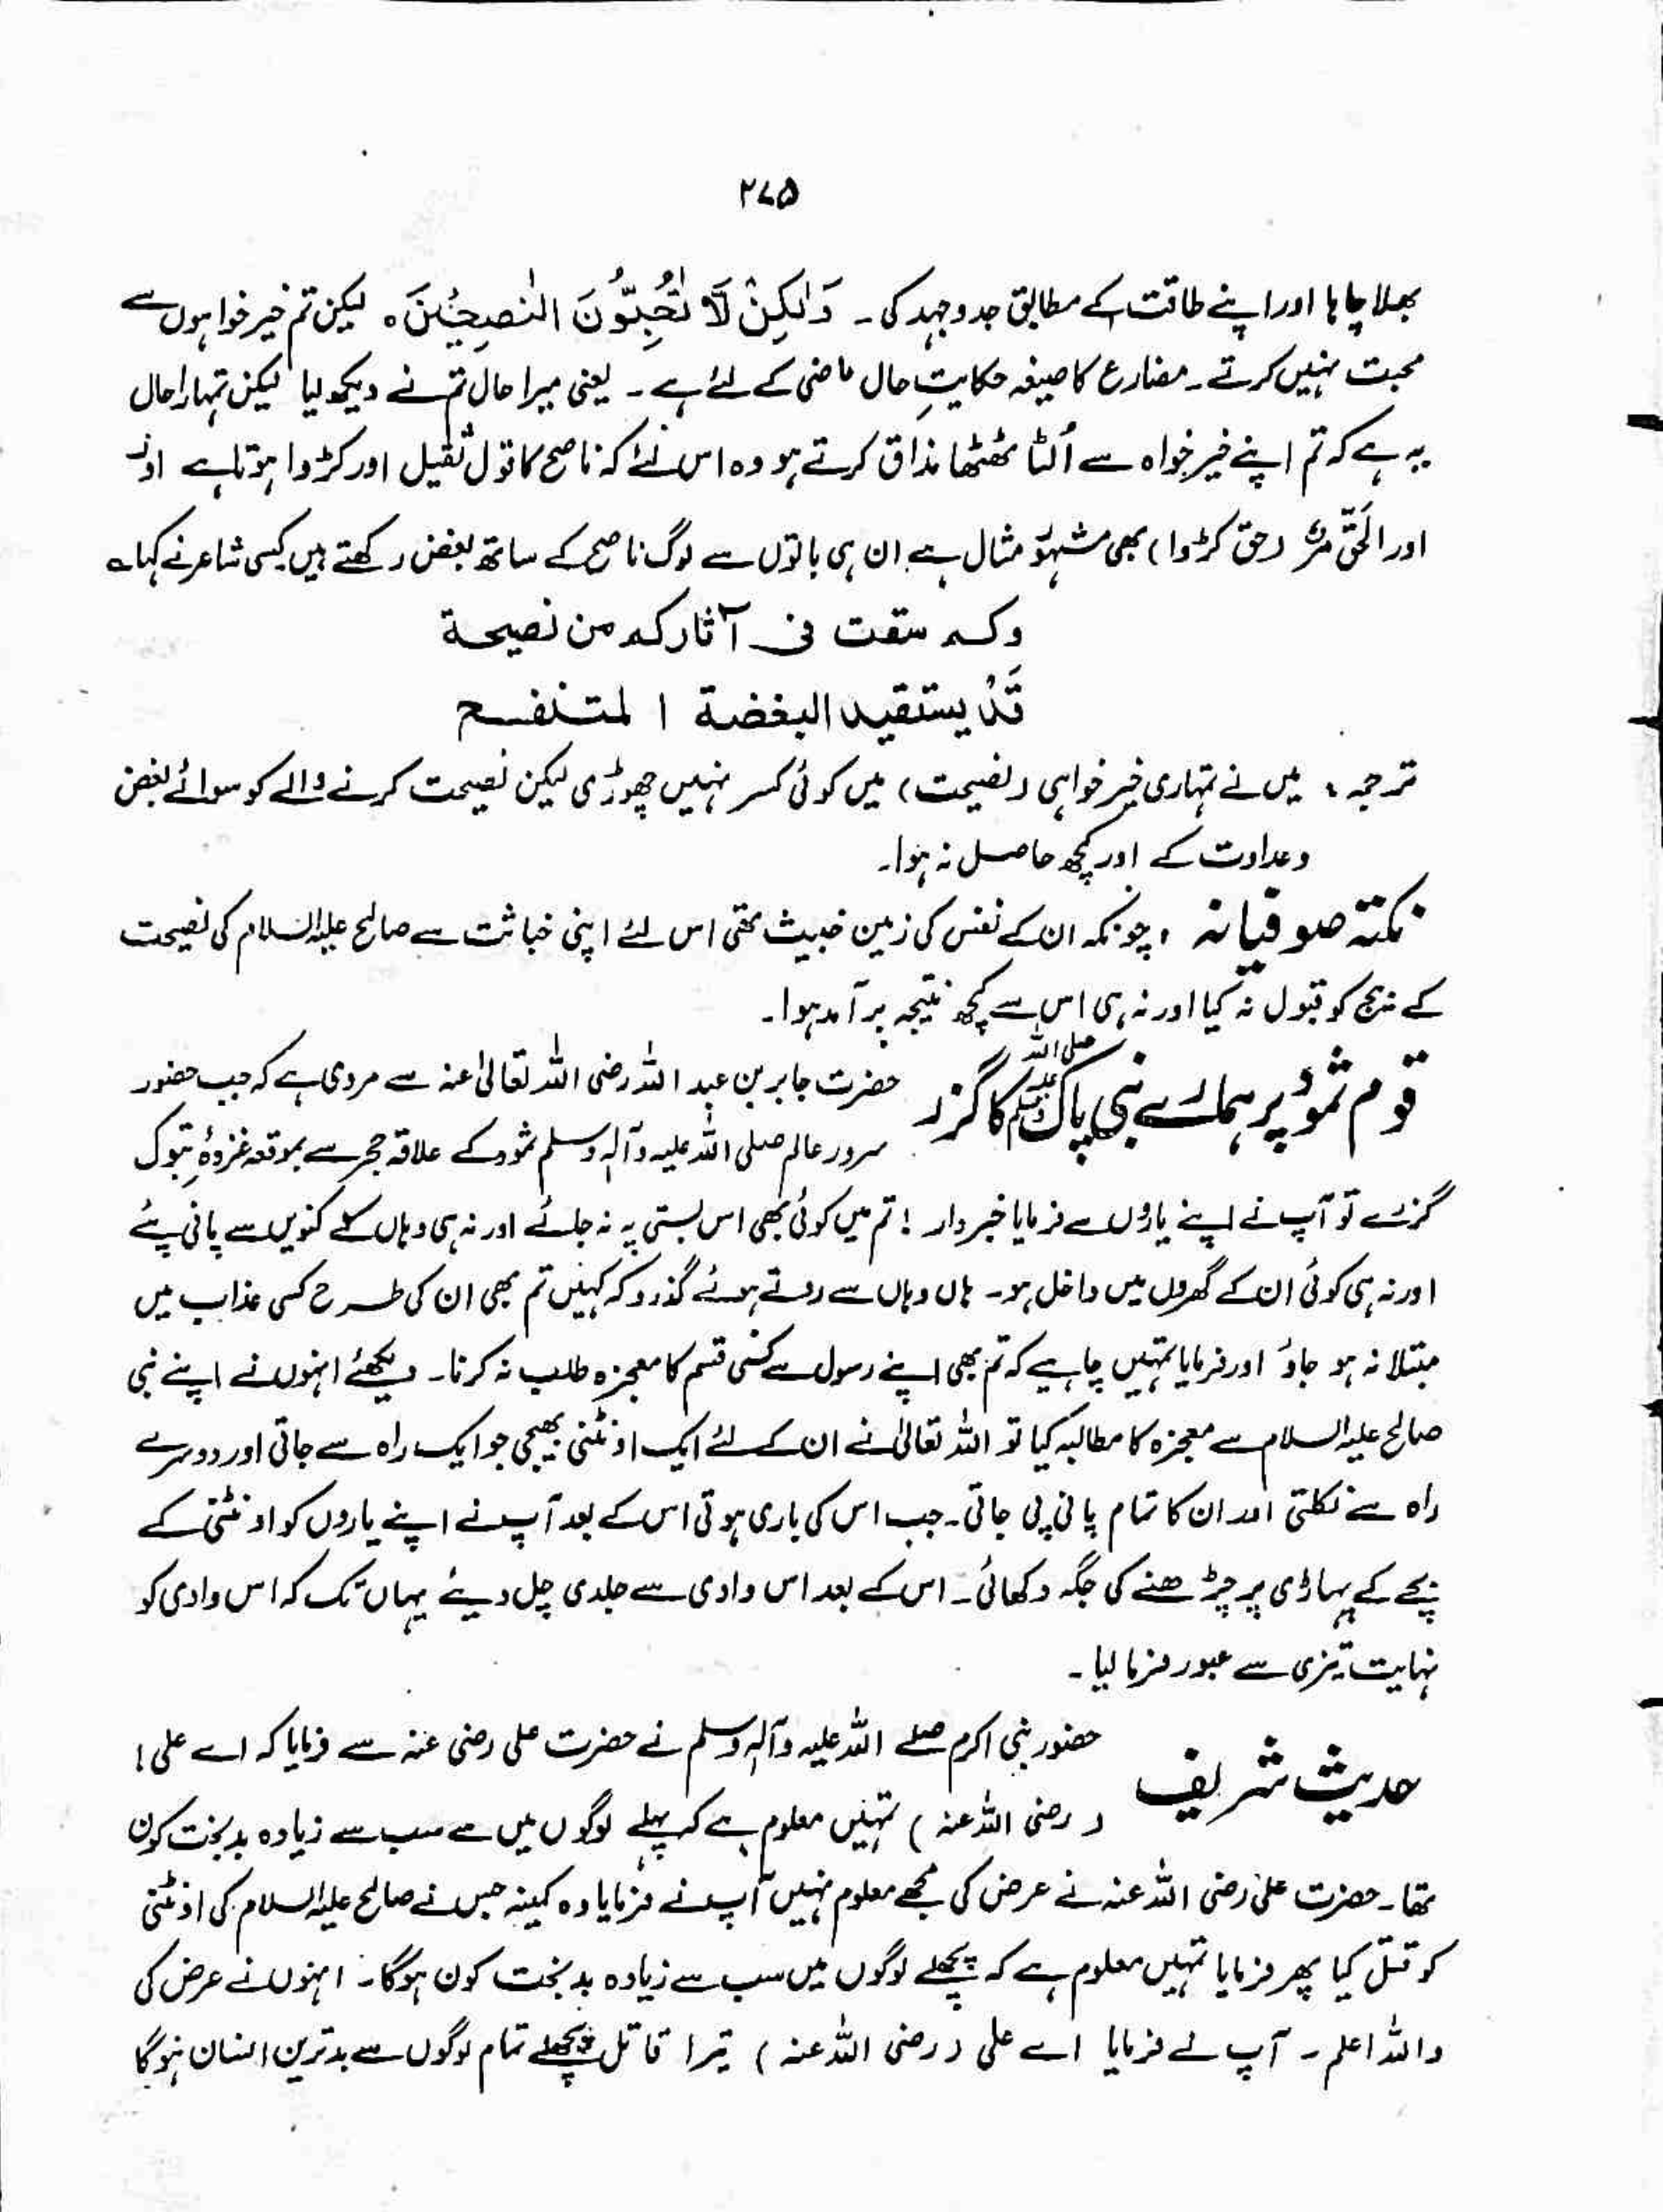 ۲۷۵
بھلا چاہا اور اپنے طاقت کے مطابق جدوجہد کی ۔ وَلٰكِنْ لَّا تُحِبُّوْنَ النّٰصِحِيْنَ ہ لیکن تم خیر خواہوں سے
محبت نہیں کرتے ۔ مضارع کا صیغہ حکایتِ حال ماضی کے لئے ہے ۔ یعنی میرا حال تم نے دیکھ لیا لیکن تمہارا حال
یہ ہے کہ تم اپنے خیر خواہ سے اُلٹا ٹھٹھا مذاق کرتے ہو وہ اس لئے کہ ناصح کا قول ثقیل اور کڑوا ہوتا ہے اور
اور الحَقّ مُرٌّ (حق کڑوا) بھی مشہور مثال ہے ان ہی باتوں سے لوگ ناصح کے ساتھ بغض رکھتے ہیں کسی شاعر نے کہا ہ
وکم سقت فی آثارکم من نصیحة
قَدْ یستقید البغضة المتنصح
ترجمہ : میں نے تمہاری خیر خواہی (نصیحت) میں کوئی کسر نہیں چھوڑی لیکن نصیحت کرنے والے کو سوائے بغض
و عداوت کے اور کچھ حاصل نہ ہوا ۔
نکتہ صوفیانہ : چونکہ ان کے نفس کی زمین خبیث تھی اس لئے اپنی خباثت سے صالح علیہ السلام کی نصیحت
کے بیج کو قبول نہ کیا اور نہ ہی اس سے کچھ نتیجہ برآمد ہوا ۔
قوم ثمود پر ہمارے نبی پاک صلی اللہ علیہ وسلم کا گزر حضرت جابر بن عبد اللہ رضی اللہ تعالیٰ عنہ سے مروی ہے کہ جب حضور
سرور عالم صلی اللہ علیہ وآلہ وسلم ثمود کے علاقہ حجر سے بموقعہ غزوۂ تبوک
گزرے تو آپ نے اپنے یاروں سے فرمایا خبردار ! تم میں کوئی بھی اس بستی پہ نہ جائے اور نہ ہی وہاں کے کنویں سے پانی پئے
اور نہ ہی کوئی ان کے گھروں میں داخل ہو ۔ ہاں وہاں سے روتے ہوئے گذرو کہ کہیں تم بھی ان کی طرح کسی عذاب میں
مبتلا نہ ہو جاؤ اور فرمایا تمہیں چاہیے کہ تم بھی اپنے رسول سے کسی قسم کا معجزہ طلب نہ کرنا ۔ دیکھئے انہوں نے اپنے نبی
صالح علیہ السلام سے معجزہ کا مطالبہ کیا تو اللہ تعالیٰ نے ان کے لئے ایک اونٹنی بھیجی جو ایک راہ سے جاتی اور دوسرے
راہ سے نکلتی اور ان کا تمام پانی پی جاتی ۔ جب اس کی باری ہوتی اس کے بعد آپ نے اپنے یاروں کو اونٹنی کے
بچے کے پہاڑی پر چڑھنے کی جگہ دکھائی ۔ اس کے بعد اس وادی سے جلدی چل دیئے یہاں تک کہ اس وادی کو
نہایت تیزی سے عبور فرما لیا ۔
حدیث شریف حضور نبی اکرم صلے اللہ علیہ وآلہ وسلم نے حضرت علی رضی عنہ سے فرمایا کہ اے علی !
(رضی اللہ عنہ) تمہیں معلوم ہے کہ پہلے لوگوں میں سے سب سے زیادہ بدبخت کون
تھا ۔ حضرت علی رضی اللہ عنہ نے عرض کی مجھے معلوم نہیں آپ نے فرمایا وہ کمینہ جس نے صالح علیہ السلام کی اونٹنی
کو قتل کیا پھر فرمایا تمہیں معلوم ہے کہ پچھلے لوگوں میں سب سے زیادہ بدبخت کون ہوگا ۔ انہوں نے عرض کی
واللہ اعلم ۔ آپ نے فرمایا اے علی (رضی اللہ عنہ) تیرا قاتل پچھلے تمام لوگوں سے بدترین انسان ہوگا